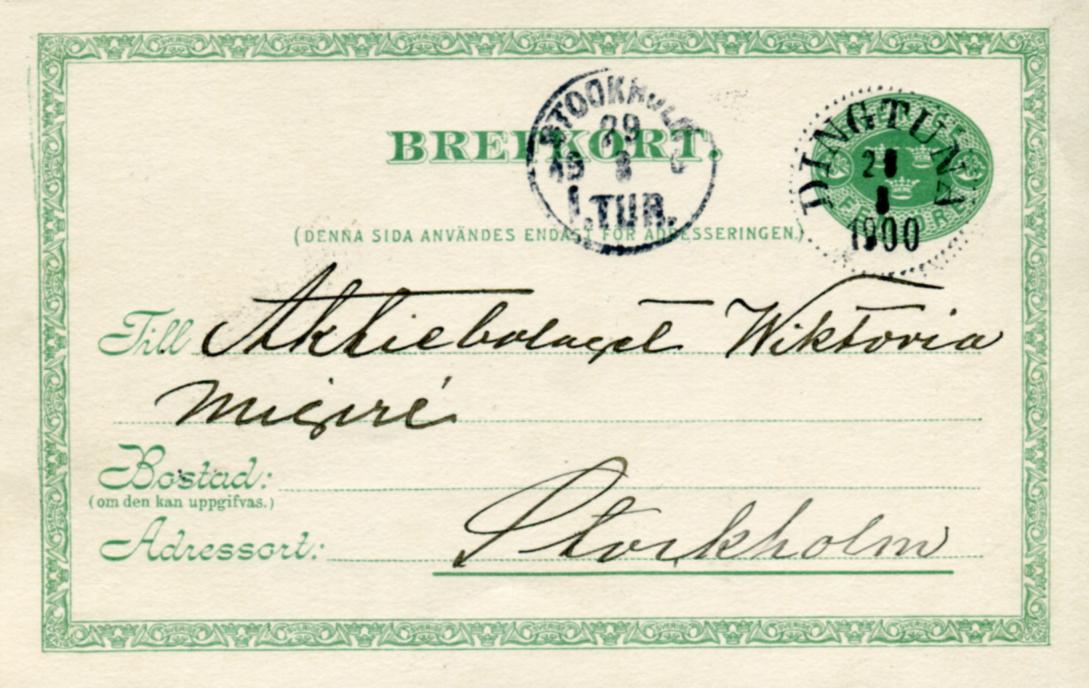 BREFKORT.
STOCKHOLM
29
19 8 0
1.TUR.
DINGTUNA
28
8
1900
FEM ÖRE
(DENNA SIDA ANVÄNDES ENDAST FÖR ADRESSERINGEN.)
Till Aktiebolaget Wiktoria
Bostad:
(om den kan uppgifvas.)
Adressort: Stockholm